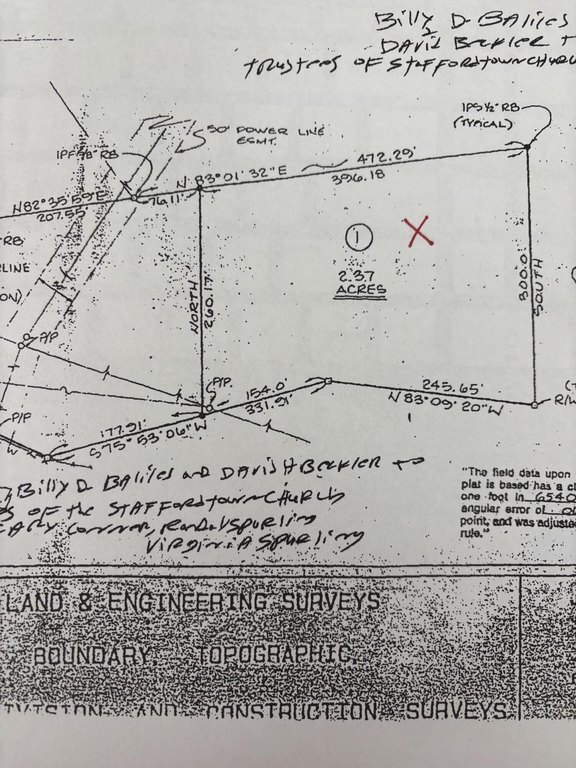 Billy D. Baliles
David Beckler +
trustees of Staffordtown Church
IPS ½" RB
(TYPICAL)
50' POWER LINE
ESMT.
IPF ⅜" RB
N 83°01'32"E
472.29'
396.18
76.11'
N82°35'59"E
207.55'
RB
1
RLINE
ON)
2.37
ACRES
NORTH
260.17'
300.0'
SOUTH
P/P
P/P.
P/P
154.0'
331.91'
245.65'
N 83°09'20"W
R/W
177.91'
S75°53'06"W
Billy D Baliles and David H Beckler to
s of the Staffordtown Church
Connor, Randal Spurling
Virginia Spurling
"The field data upon
plat is based has a cl
one foot in 6540
angular error of
point, and was adjuste
rule."
LAND & ENGINEERING SURVEYS
BOUNDARY, TOPOGRAPHIC,
IVISION AND CONSTRUCTION SURVEYS